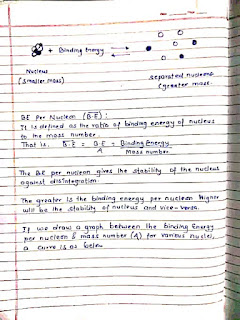 + Binding Energy
Nucleus
(Smaller mass)
separated nucleons
(greater mass.
BE Per Nucleon (B.E) :
It is defined as the ratio of binding energy of nucleus
to the mass number.
That is, B.E = BE = Binding Energy
A Mass number
The BE per nucleon gives the stability of the nucleus
against disintegration.
The greater is the binding energy per nucleon Higher
will be the stability of nucleus and vice-versa.
If we draw a graph between the binding Energy
per nucleon & mass number (A) for various nuclei,
a curve is as below